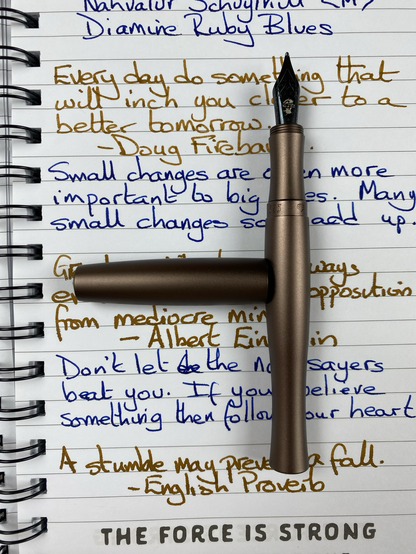 Nahvalur Schuylkill (M)
Diamine Ruby Blues
Every day do something that
will inch you closer to a
better tomorrow.
-Doug Fireba
Small changes are often more
important to big es. Many
small changes so add up.
ways
opposition
from mediocre min
- Albert Einstein
Don't let the nay sayers
beat you. If you believe
something then follow your heart
A stumble may prevent a fall.
-English Proverb
THE FORCE IS STRONG